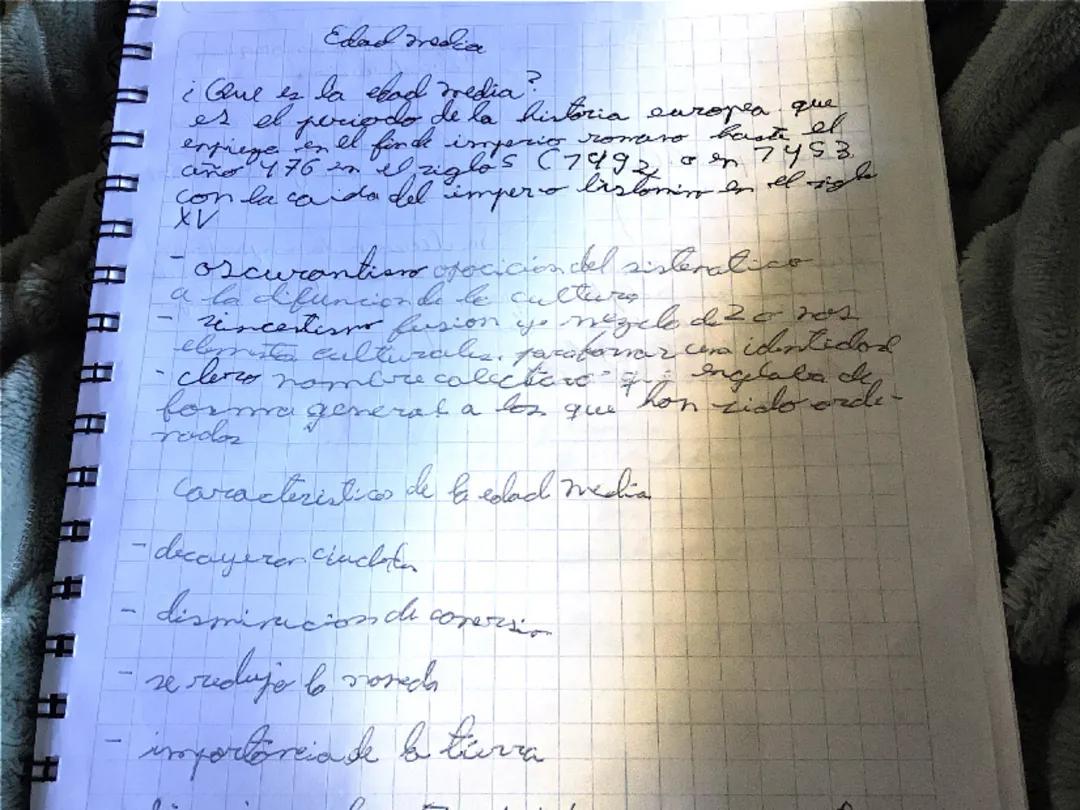 Edad media
¿Que es la edad media?
es el periodo de la historia europea que
empieza en el fin de imperio romano hasta el
año 476 en el siglo 5 (1492 o en 1453
con la caida del impero en el siglo
XV
- oscurantismo oposicion del sistematico
a la difucion de la cultura
- fusion y mezcla de 2 o mas
elementos culturales, para formar una identidad
- clero nombre colectivo q englaba de
forma general a los que han sido orde-
nados
Caracteristicas de la edad media
- decayeron
- disminucion de
- se redujo la moneda
- importancia de la tierra